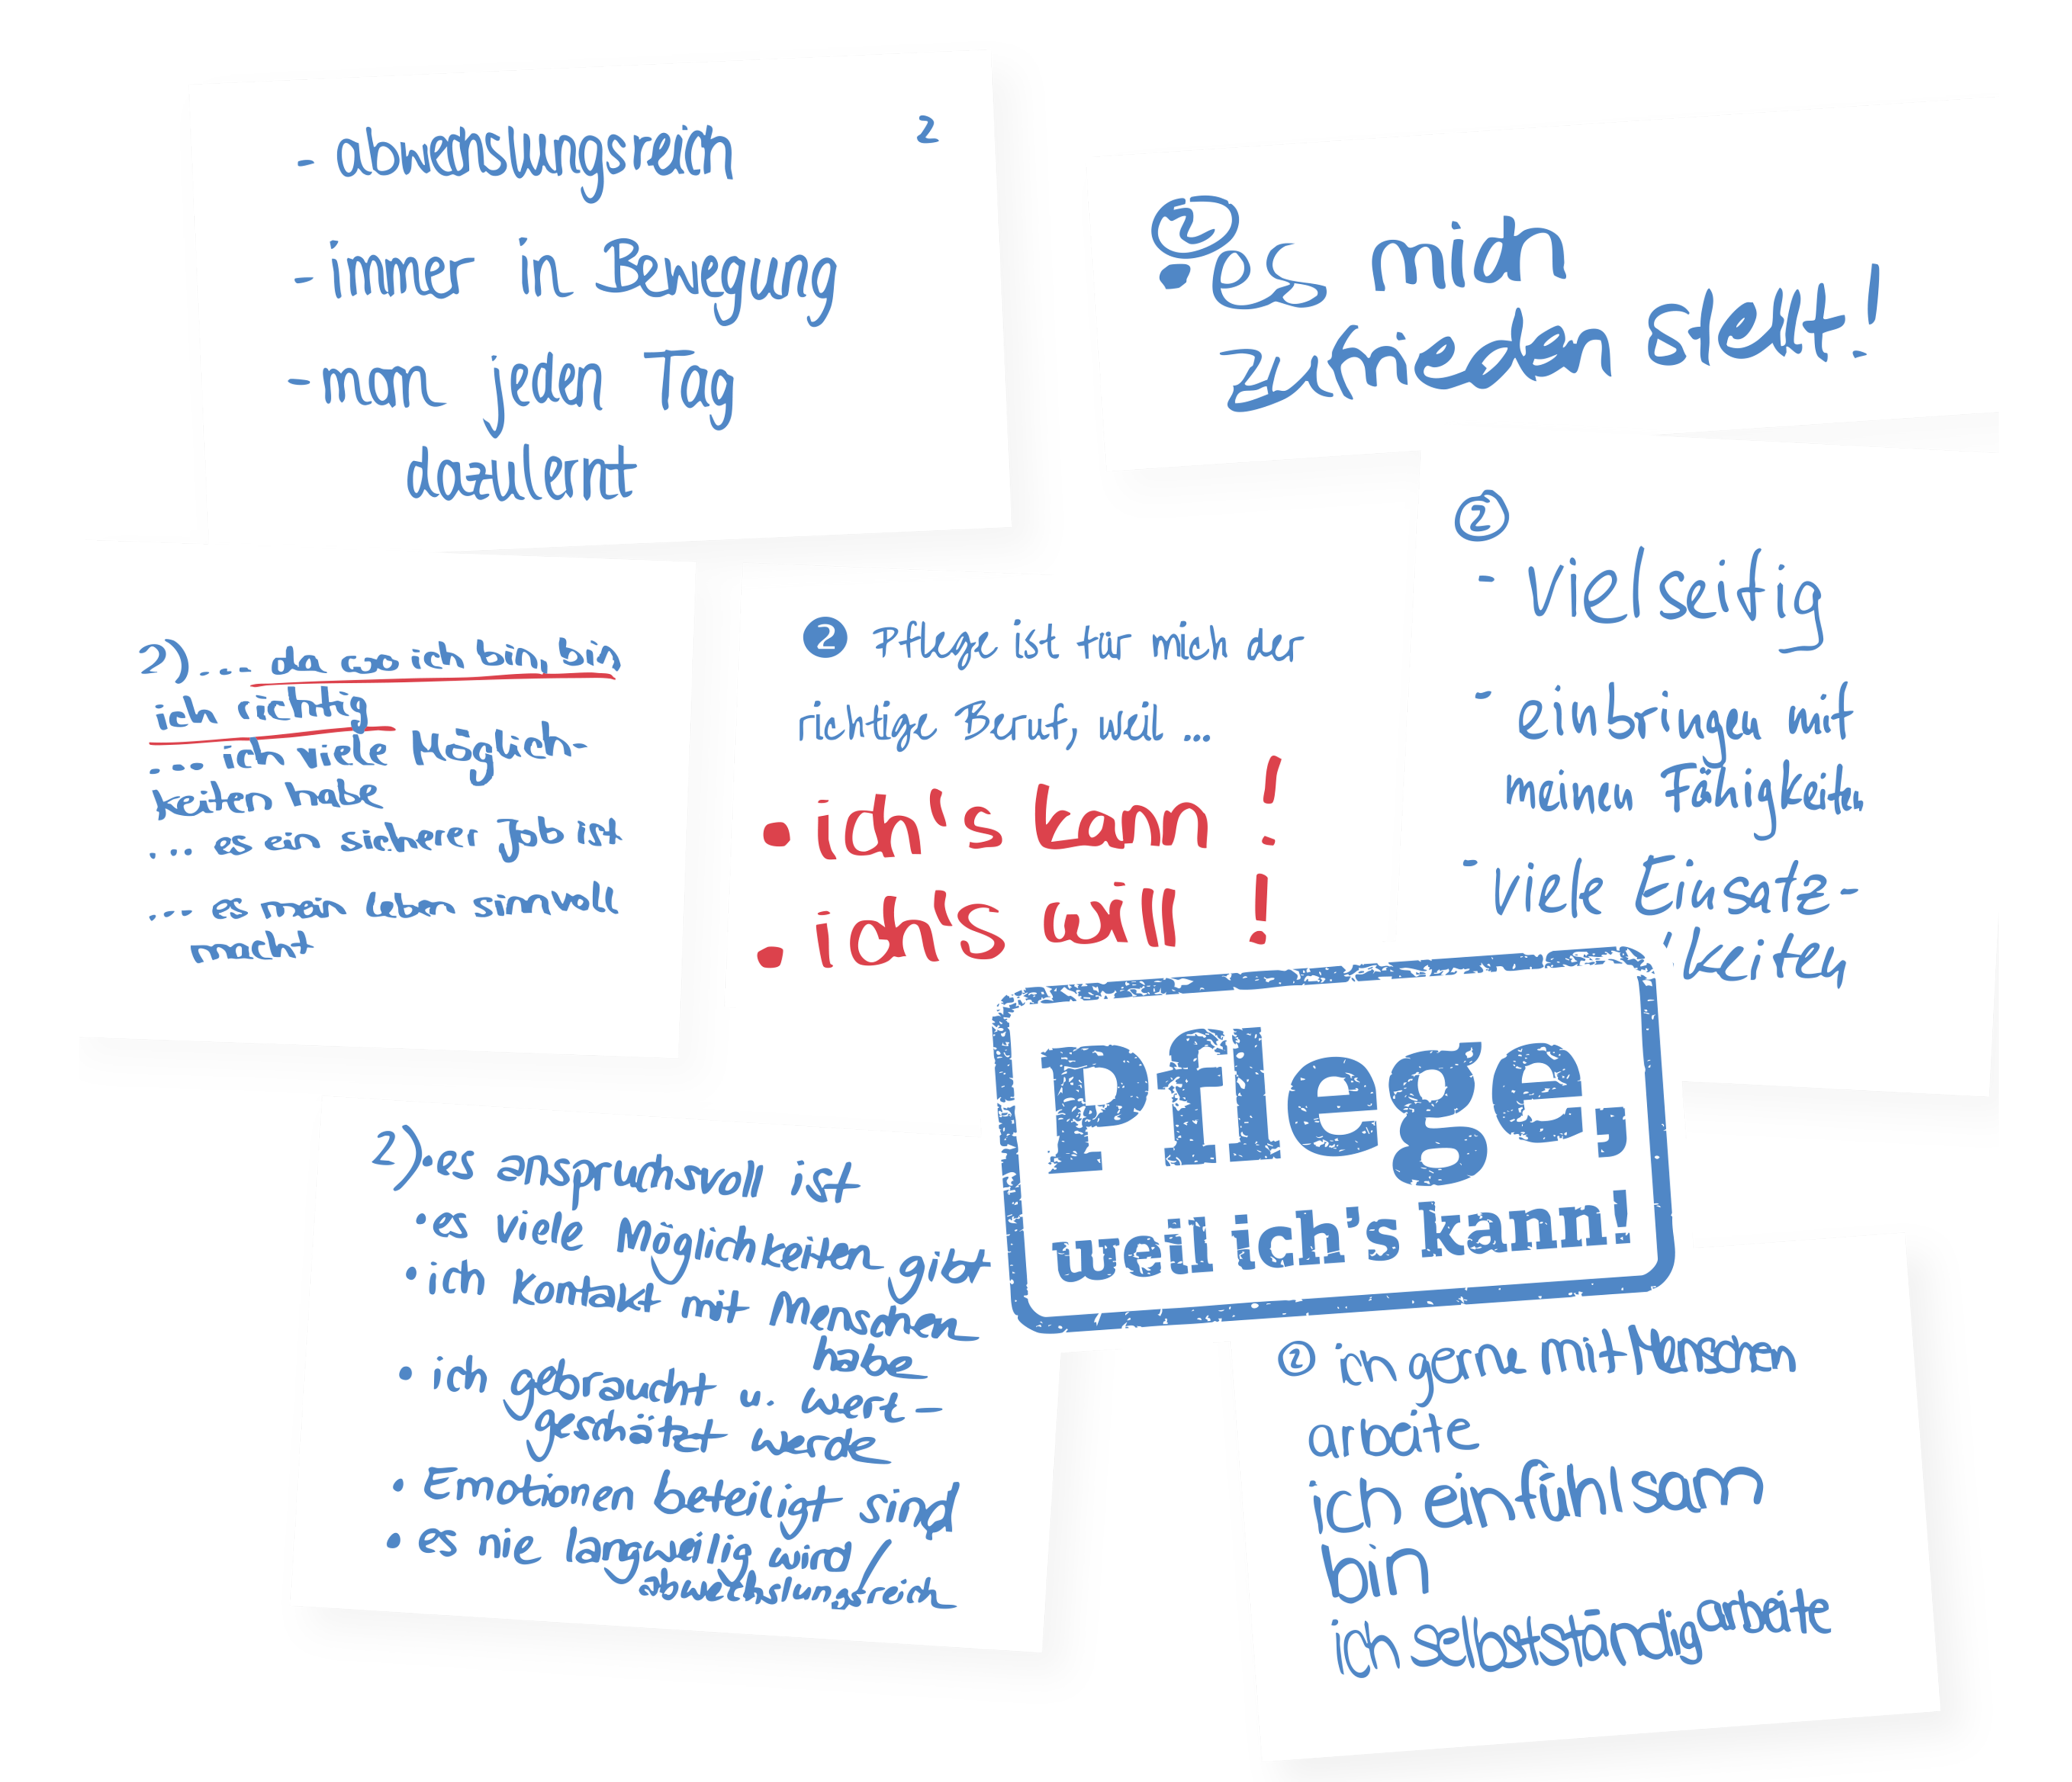 - abwechslungsreich
2
- immer in Bewegung
- man jeden Tag
dazulernt
②
• es mich
zufrieden stellt!
2) ... da wo ich bin, bin
ich richtig
... ich viele Möglich-
keiten habe
... es ein sicherer Job ist
... es mein Leben sinnvoll
macht
❷ Pflege ist für mich der
richtige Beruf, weil ...
• ich's kann!
• ich's will!
②
- vielseitig
- einbringen mit
meinen Fähigkeiten
- viele Einsatz-
keiten
Pflege,
weil ich's kann!
2) • es anspruchsvoll ist
• es viele Möglichkeiten gibt
• ich Kontakt mit Menschen
habe
• ich gebraucht u. wert-
geschätzt werde
• Emotionen beteiligt sind
• es nie langweilig wird /
abwechslungsreich
② ich gerne mit Menschen
arbeite
ich einfühlsam
bin
ich selbstständig arbeite